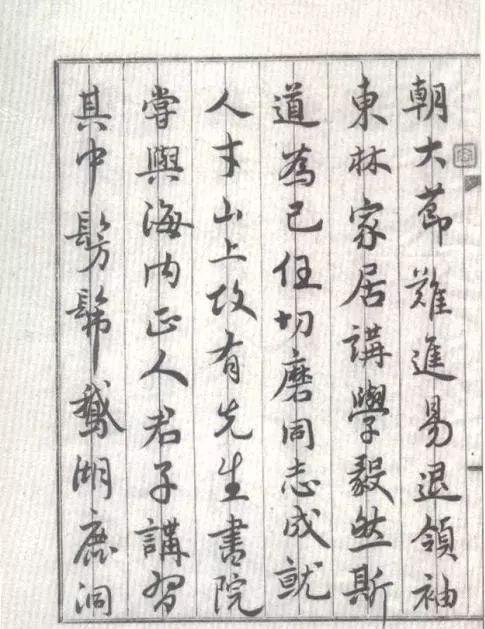 朝大節難進易退領袖
東林家居講學毅然斯
道為己任切磨同志成就
人才山上故有先生書院
嘗與海内正人君子講習
其中髣髴鵝湖鹿洞